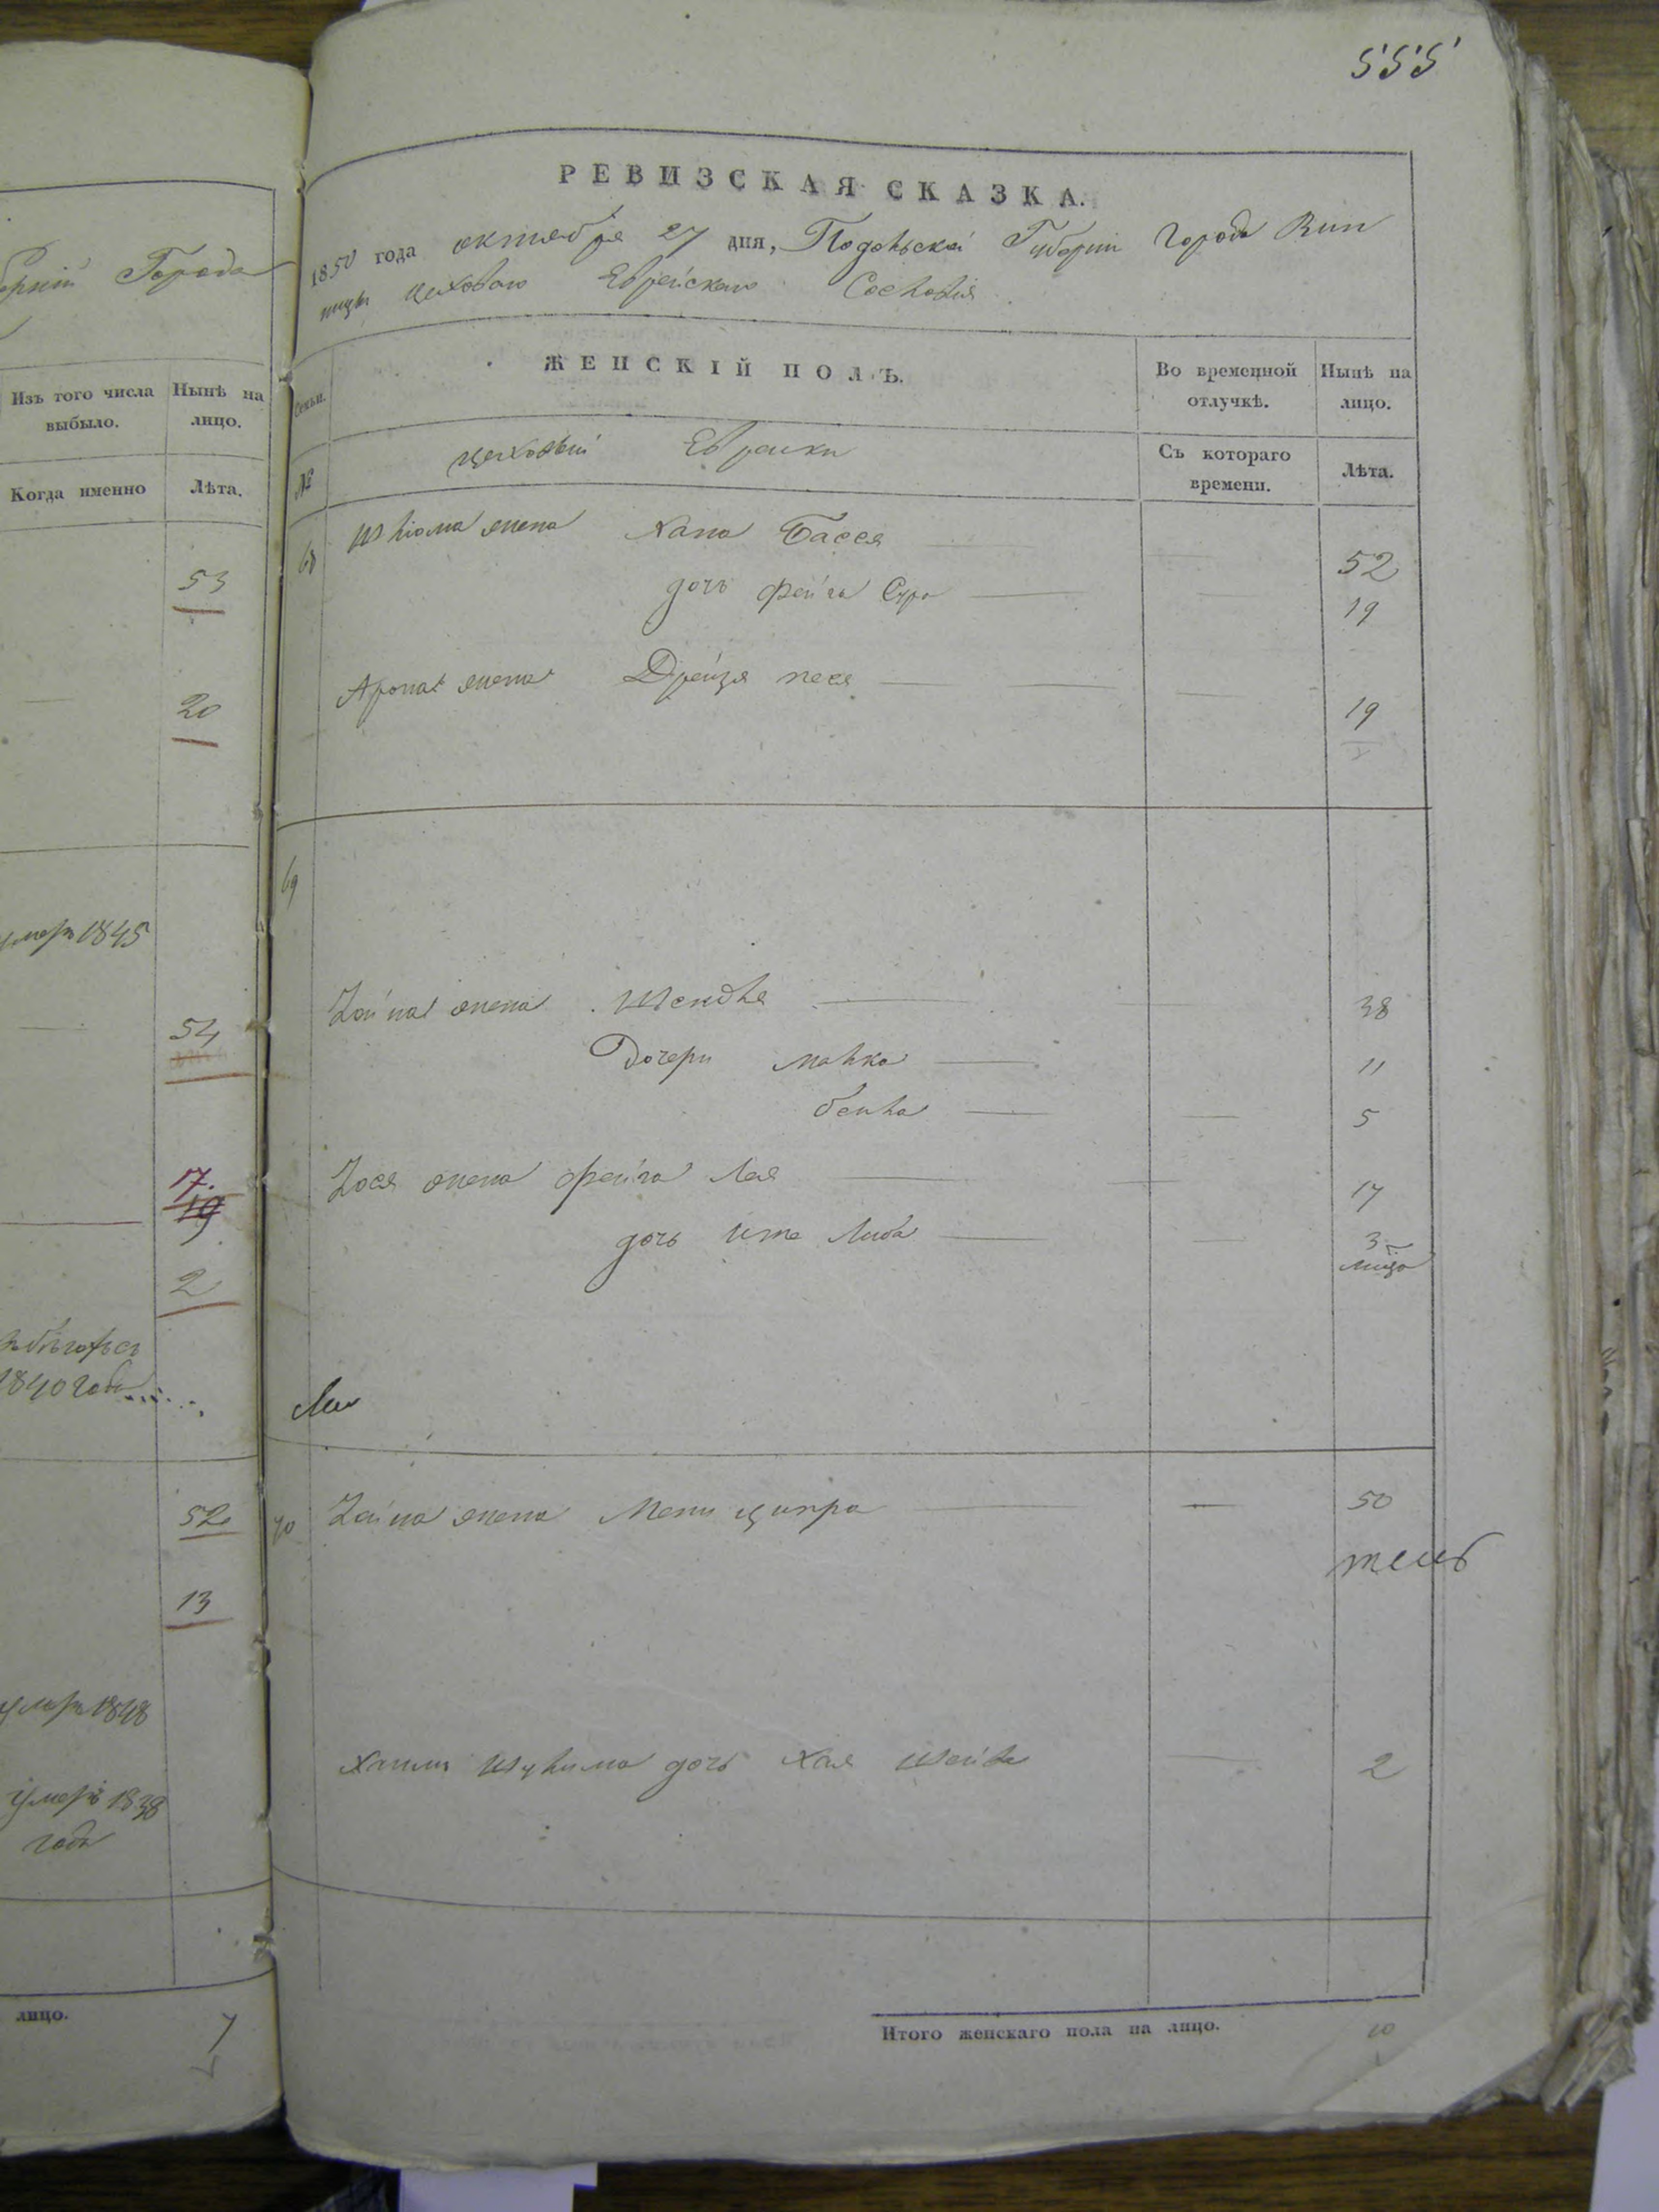 Городa
Изъ того числа выбыло.
Нынѣ на лицо.
Когда именно
Лѣта.
53
20
умеръ 1845
54
17.
19
2
1840 года
52
13
умеръ 1848
умеръ 1838
года
лицо.
7
555
РЕВИЗСКАЯ СКАЗКА.
1850 года октября 27 дня, Подольской Губернии Города Вин
ницы цеховаго Еврейскаго Сословія
Семьи.
ЖЕНСКІЙ ПОЛЪ.
Во временной отлучкѣ.
Нынѣ на лицо.
№
цеховыи Евреики
Съ котораго времени.
Лѣта.
68 Шліома жена Хана Бася 52
дочь фейга Сура 19
Арона жена Дрейзя песя 19
69
жена Шендля 38
Дочери малка 11
бейла 5
жена фейга Лея 17
дочь ите Либа 3
70 жена Мени ципра 50
дочь Хая Шейва 2
Итого женскаго пола на лицо.
10